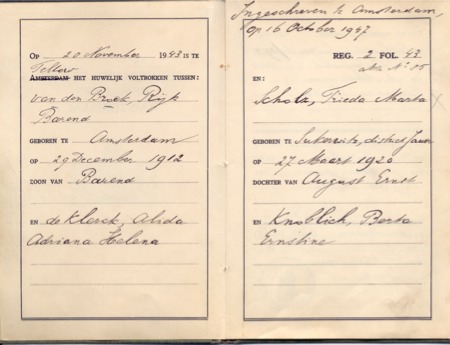 OP 20 November 1943 IS TE
Teltow
AMSTERDAM HET HUWELIJK VOLTROKKEN TUSSEN:
van den Broek, Rijk
Barend
GEBOREN TE Amsterdam
OP 29 December 1912
ZOON VAN Barend
EN de Klerck, Alida
Adriana Helena
Ingeschreven te Amsterdam,
op 16 October 1947
REG. 2 FOL. 43
akte No. 15
EN:
Scholz, Frieda Marta
GEBOREN TE district Jauer
OP 27 Maart 1920
DOCHTER VAN August Ernst
EN Knoblich, Berta
Ernstine